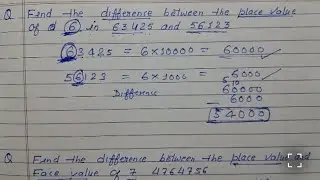 Q Find the difference between the place value
of 6 in 63425 and 56123
63425 = 6×10000 = 60000
56123 = 6×1000 = 6000
Difference
5 10
60000
- 6000
54000
Q Find the difference between the place value and
Face value of 7 4764756